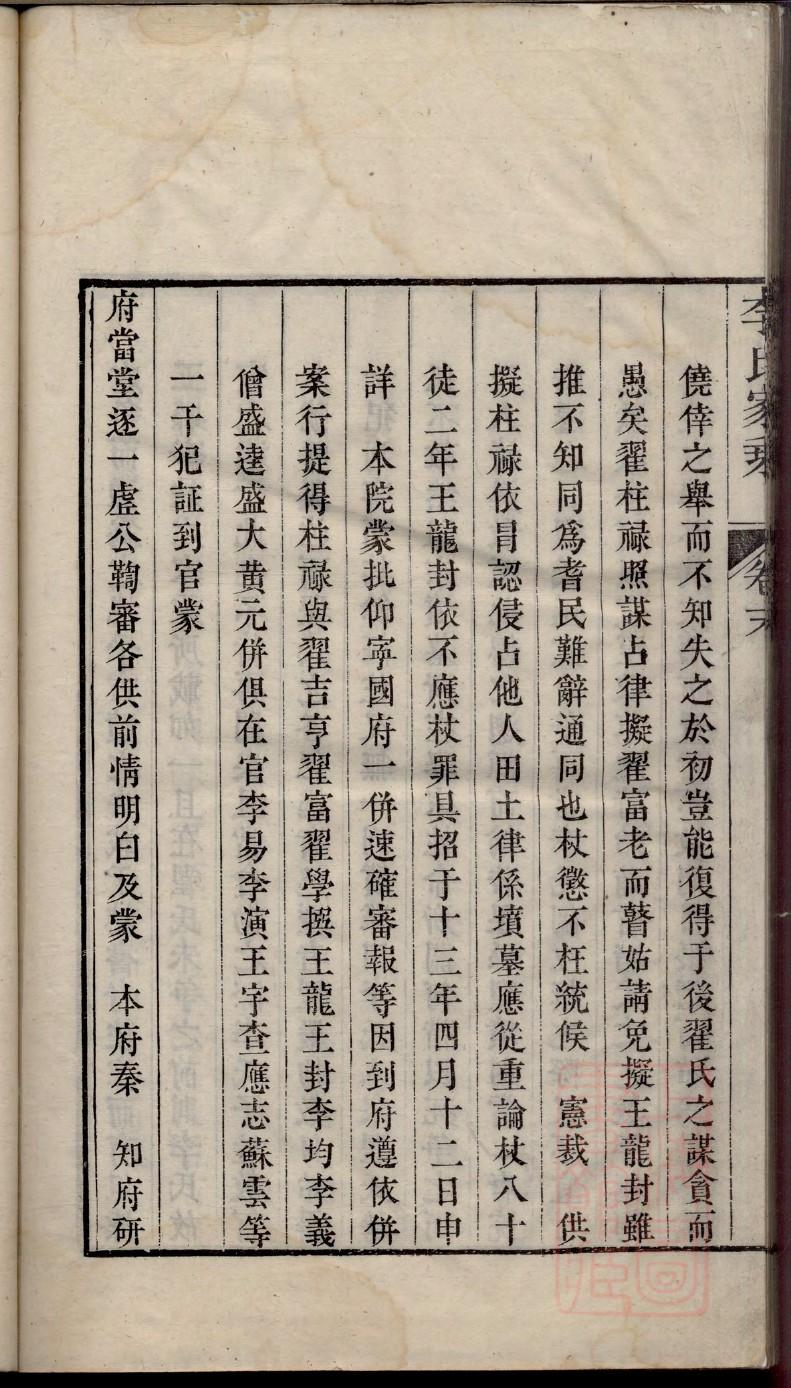 李氏家乘 卷末
僥倖之舉而不知失之於初豈能復得于後翟氏之謀貪而
愚矣翟柱祿照謀占律擬翟富老而瞽姑請免擬王龍封雖
推不知同爲耆民難辭通同也杖懲不枉統候 憲裁 供
擬柱祿依冒認侵占他人田土律係墳墓應從重論杖八十
徒二年王龍封依不應杖罪具招于十三年四月十二日申
詳 本院蒙批仰寧國府一併速確審報等因到府遵依併
案行提得柱祿與翟吉亨翟富翟學撰王龍王封李均李義
僧盛逵盛大黄元併俱在官李易李演王宇查應志蘇雲等
一干犯証到官蒙
府當堂逐一虛公鞫審各供前情明白及蒙 本府秦 知府研